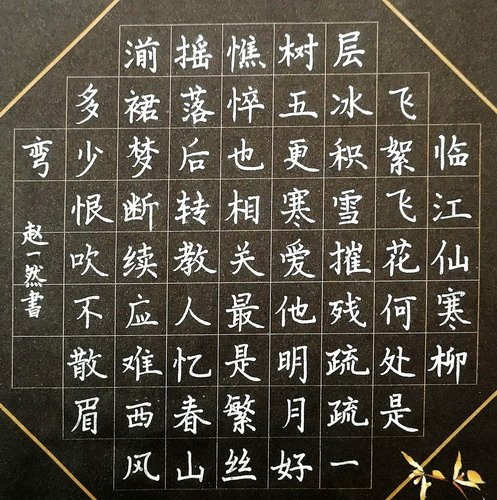 临江仙寒柳
飞絮飞花何处是
层冰积雪摧残疏疏一
树五更寒爱他明月好
憔悴也相关最是繁丝
摇落后转教人忆春山
湔裙梦断续应难西风
多少恨吹不散眉
弯
赵一然書